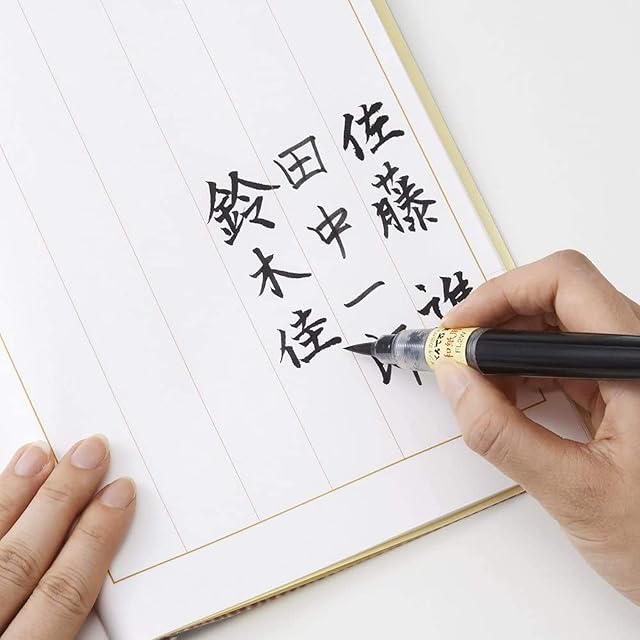 佐藤
田中一
鈴木佳